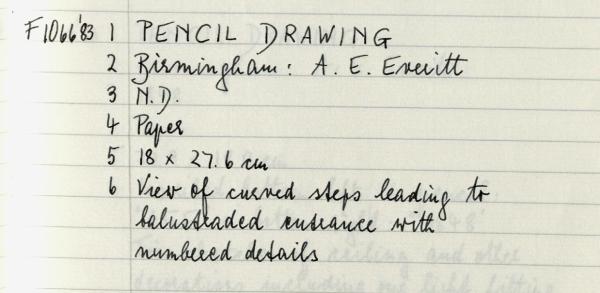 F1066'83 1 PENCIL DRAWING
2 Birmingham: A. E. Everitt
3 N.D.
4 Paper
5 18 x 27.6 cm
6 View of curved steps leading to
balustraded entrance with
numbered details